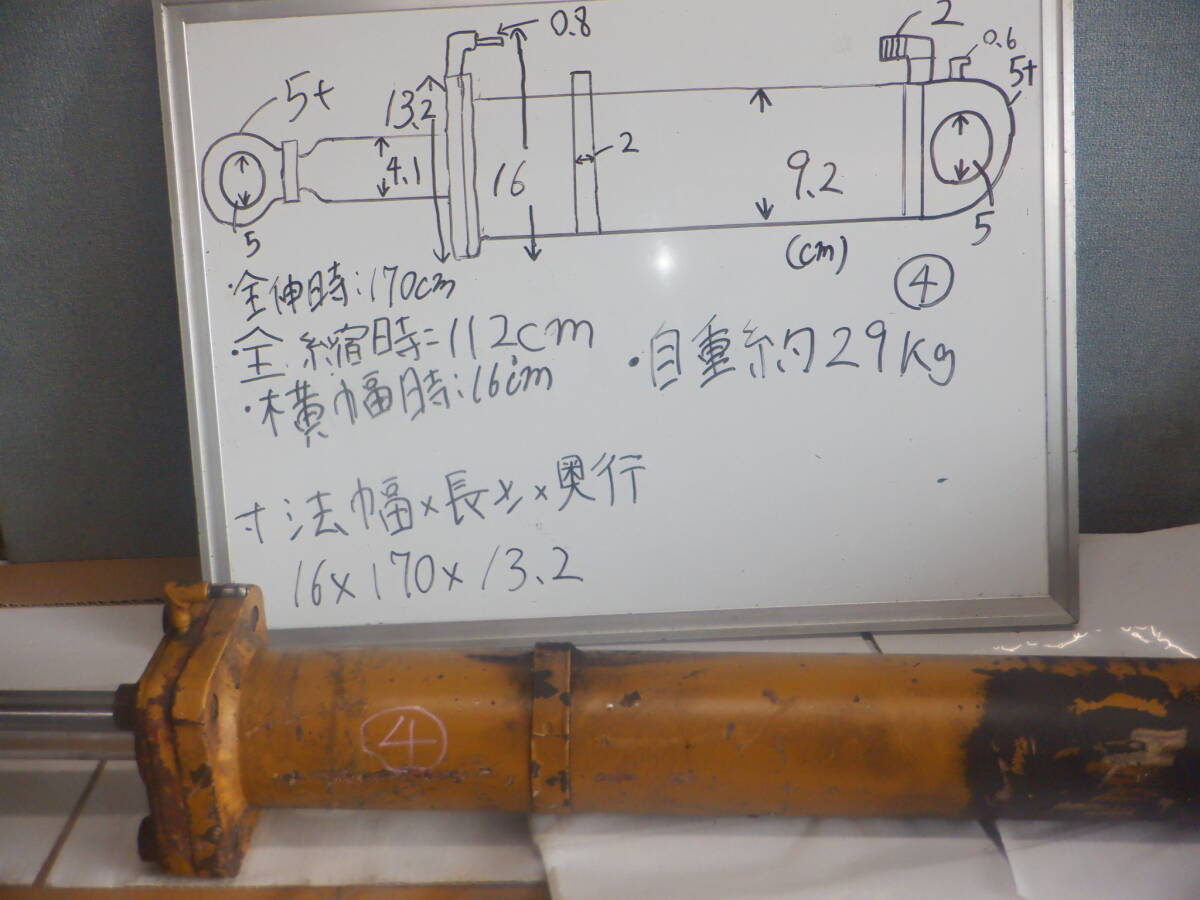 0.8
2
0.6
5t
5t
13.2
4.1
16
2
9.2
5
5
(cm)
④
・全伸時:170cm
・全縮時=112cm
・自重約29kg
・横幅時:16cm
寸法幅×長さ×奥行
16×170×13.2
④